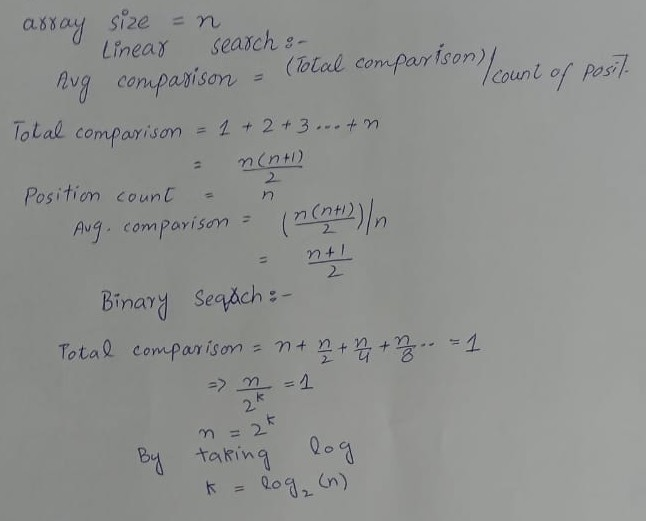 array size = n
Linear search :-
Avg comparison = (Total comparison)/count of posit.
Total comparison = 1 + 2 + 3 ... + n
= n(n+1)/2
Position count = n
Avg. comparison = (n(n+1)/2)/n
= n+1/2
Binary Seqach :-
Total comparison = n + n/2 + n/4 + n/8 .. = 1
=> n/2^k = 1
n = 2^k
By taking log
k = log₂(n)